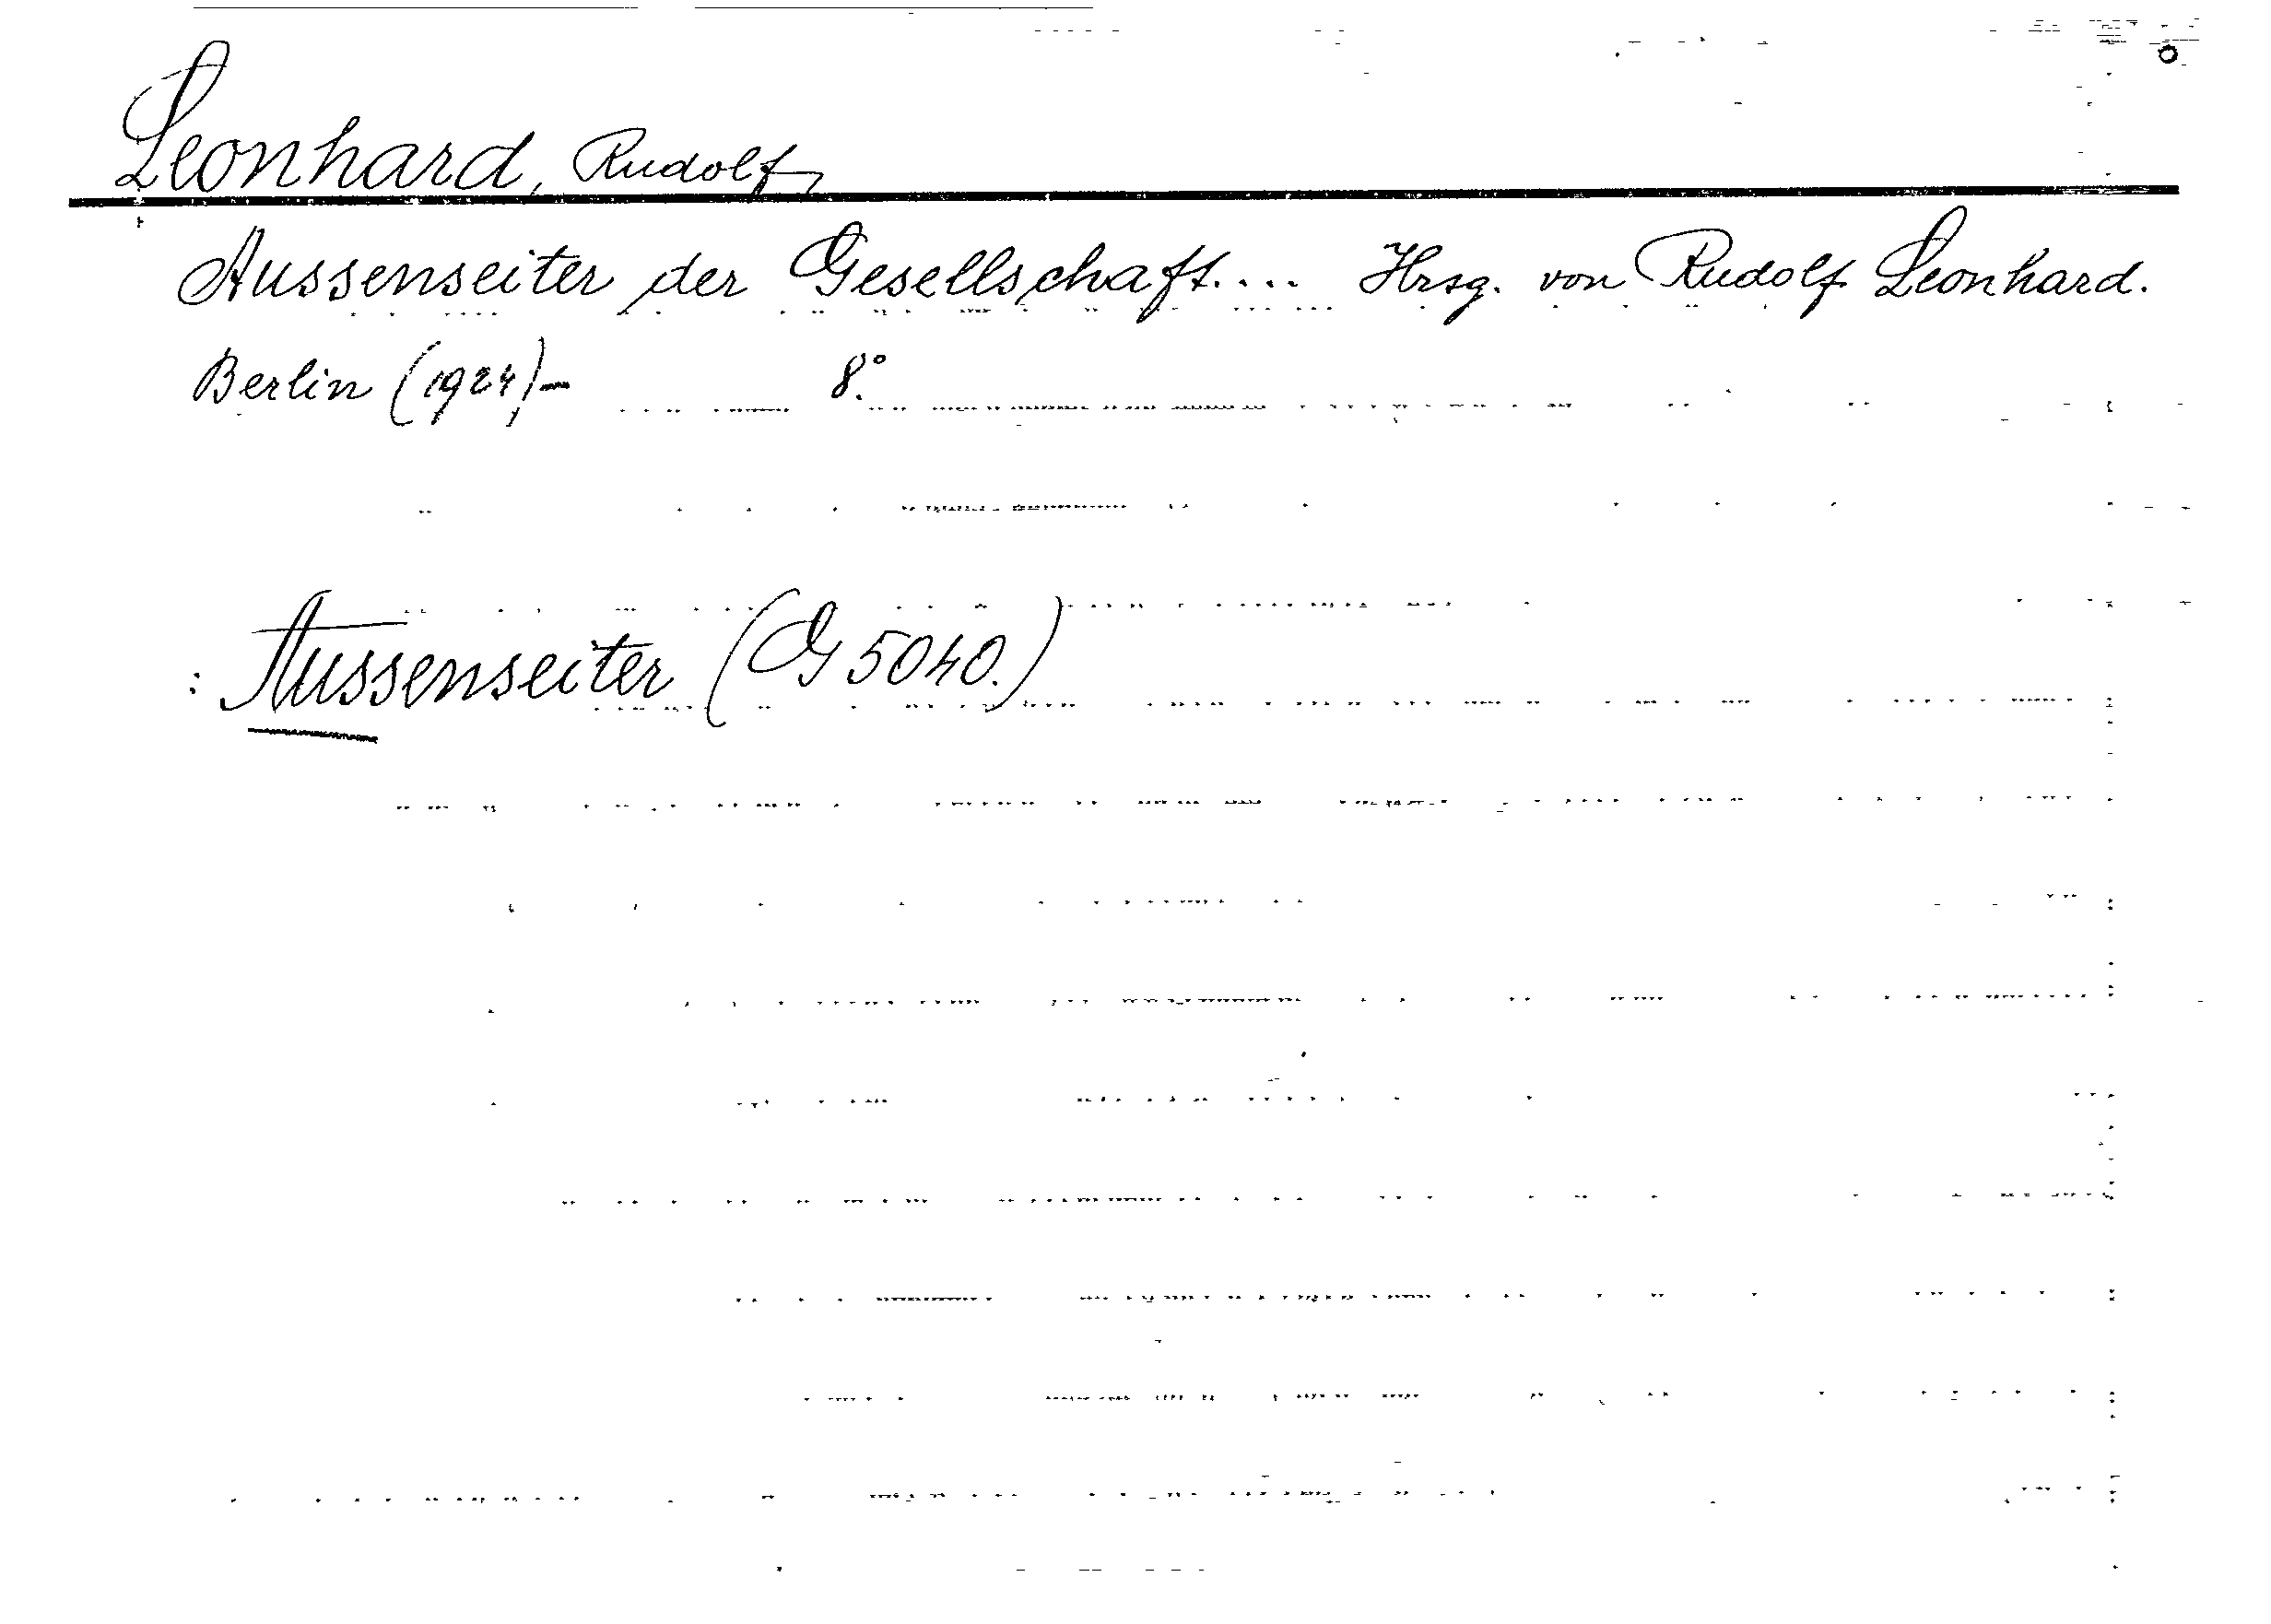 Leonhard, Rudolf,
Aussenseiter der Gesellschaft.... Hrsg. von Rudolf Leonhard.
Berlin (1924)- 8.°
: Aussenseiter (G 5040.)